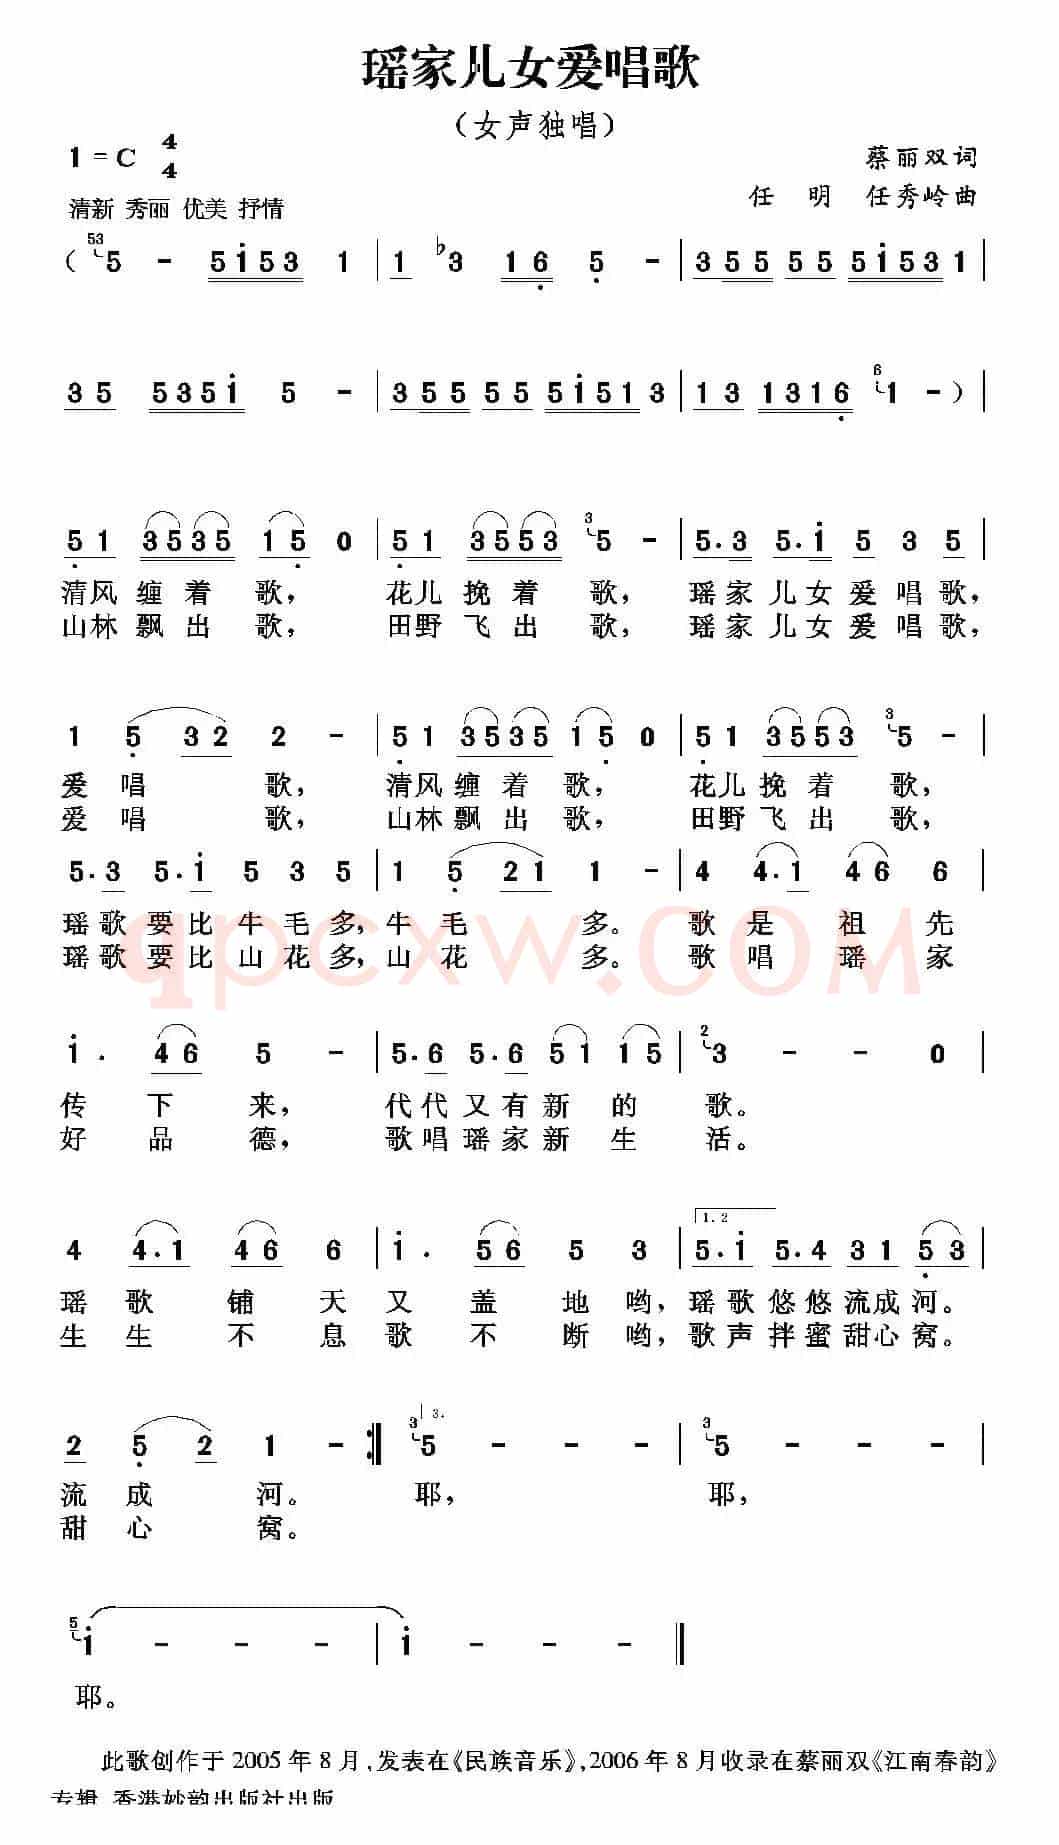 瑶家儿女爱唱歌
（女声独唱）
1 = C 4/4
蔡丽双词
清新 秀丽 优美 抒情
任 明 任秀岭曲
( 53 5 - 5 i 5 3 1 | 1 ♭3 1 6 5 - | 3 5 5 5 5 5 i 5 3 1 |
3 5 5 3 5 i 5 - | 3 5 5 5 5 5 i 5 1 3 | 1 3 1 3 1 6 6 1 - ) |
5 1 3 5 3 5 1 5 0 | 5 1 3 5 5 3 3 5 - | 5. 3 5. i 5 3 5 |
清风 缠 着 歌， 花儿 挽 着 歌， 瑶家 儿女 爱 唱 歌，
山林 飘 出 歌， 田野 飞 出 歌， 瑶家 儿女 爱 唱 歌，
1 5 3 2 2 - | 5 1 3 5 3 5 1 5 0 | 5 1 3 5 5 3 3 5 - |
爱 唱 歌， 清风 缠 着 歌， 花儿 挽 着 歌，
爱 唱 歌， 山林 飘 出 歌， 田野 飞 出 歌，
5. 3 5. i 5 3 5 | 1 5 2 1 1 - | 4 4. 1 4 6 6
瑶歌 要比 牛 毛 多，牛 毛 多。 歌 是 祖 先
瑶歌 要比 山 花 多，山 花 多。 歌 唱 瑶 家
qpcxw.COM
i . 4 6 5 - | 5. 6 5. 6 5 1 1 5 | 2 3 - - 0 |
传 下 来， 代代 又有 新 的 歌。
好 品 德， 歌唱 瑶家 新 生 活。
1. 2
4 4. 1 4 6 6 | i . 5 6 5 3 | 5. i 5. 4 3 1 5 3 |
瑶 歌 铺 天 又 盖 地 哟，瑶歌 悠悠 流成 河。
生 生 不 息 歌 不 断 哟，歌声 拌蜜 甜心 窝。
3.
2 5 2 1 - :| 3 5 - - - | 3 5 - - - |
流 成 河。 耶， 耶，
甜 心 窝。
5 i - - - | i - - - ‖
耶。
此歌创作于 2005 年 8 月，发表在《民族音乐》，2006 年 8 月收录在蔡丽双《江南春韵》
专辑 香港妙韵出版社出版